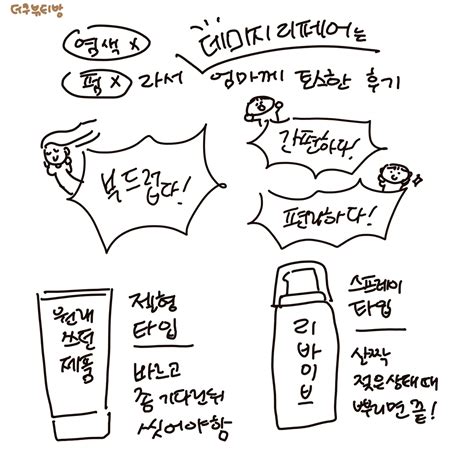 더쿠뷰티방
염색 X
데미지 리페어는
펌 X 라서 엄마께 토스한 후기
부드럽다!
간편하다!
편안하다!
원래
쓰던
제품
젤형
타입
바르고
좀 기다린뒤
씻어야함
리바이브
스프레이
타입
살짝
젖은상태때
뿌리면 끝!